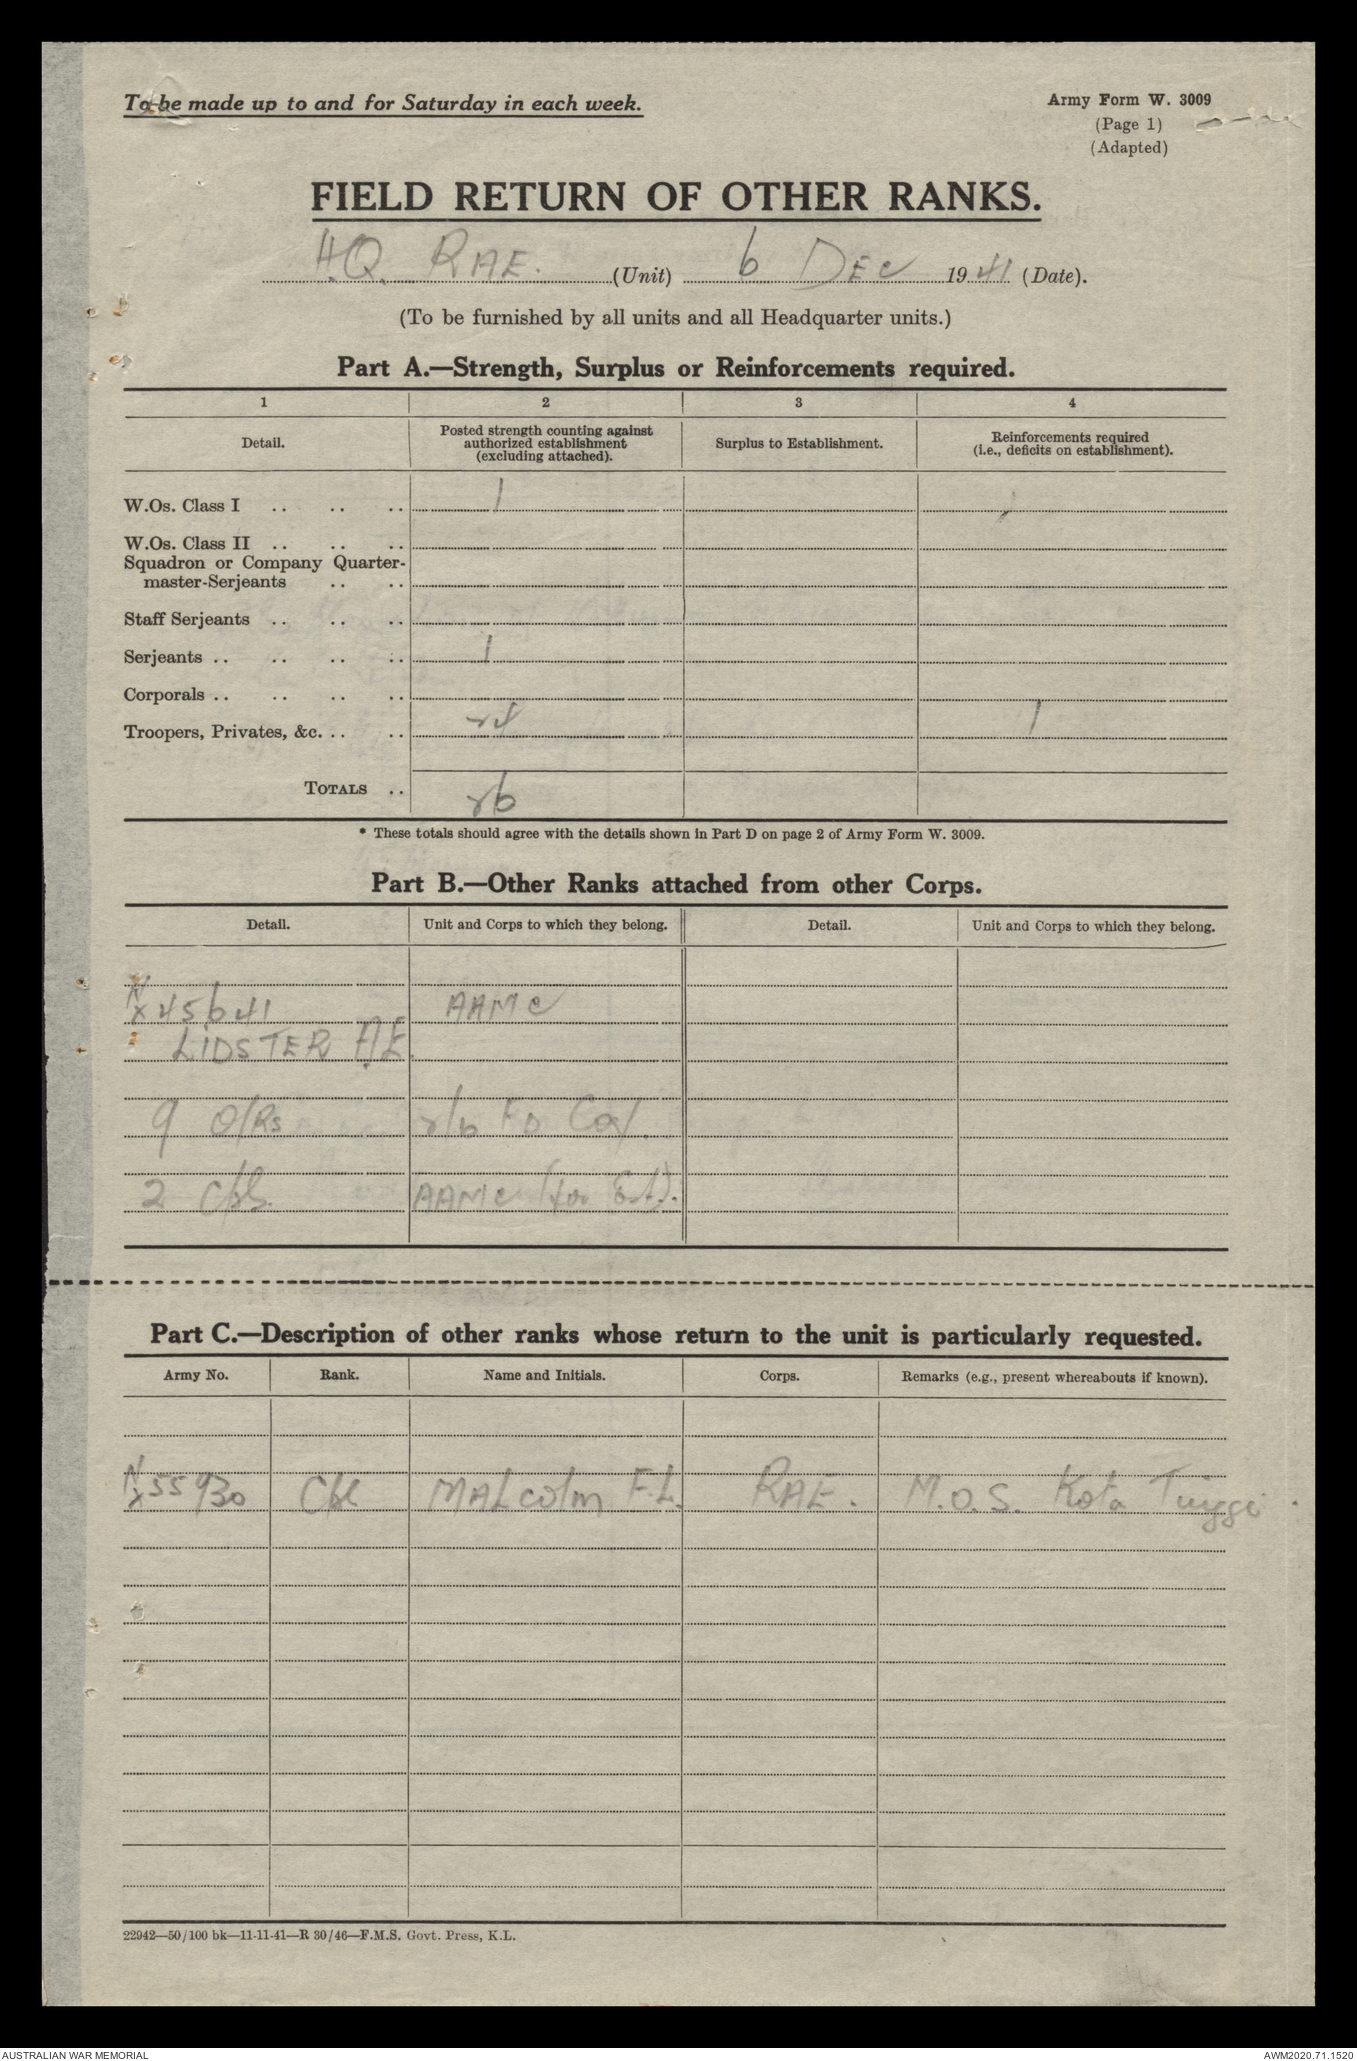 To be made up to and for Saturday in each week.
Army Form W. 3009
(Page 1)
(Adapted)
FIELD RETURN OF OTHER RANKS.
H.Q. RAE. (Unit) 6 DEC 1941 (Date).
(To be furnished by all units and all Headquarter units.)
Part A.—Strength, Surplus or Reinforcements required.
1 2 3 4
Detail. Posted strength counting against authorized establishment (excluding attached). Surplus to Establishment. Reinforcements required (i.e., deficits on establishment).
W.Os. Class I .. .. .. 1
W.Os. Class II .. .. ..
Squadron or Company Quarter-
master-Serjeants .. ..
Staff Serjeants .. .. ..
Serjeants .. .. .. .. 1
Corporals .. .. .. ..
Troopers, Privates, &c. .. .. 24 1
TOTALS .. 26
* These totals should agree with the details shown in Part D on page 2 of Army Form W. 3009.
Part B.—Other Ranks attached from other Corps.
Detail. Unit and Corps to which they belong. Detail. Unit and Corps to which they belong.
NX45641 AAMC
LIDSTER A.E.
9 O/Rs 2/6 FD Coy.
2 Cpls. AAMC
Part C.—Description of other ranks whose return to the unit is particularly requested.
Army No. Rank. Name and Initials. Corps. Remarks (e.g., present whereabouts if known).
NX55930 Cpl MALcolm F.L. RAE. M.O.S. Kota Tinggi.
22942—50/100 bk—11-11-41—R 30/46—F.M.S. Govt. Press, K.L.
AUSTRALIAN WAR MEMORIAL
AWM2020.71.1520